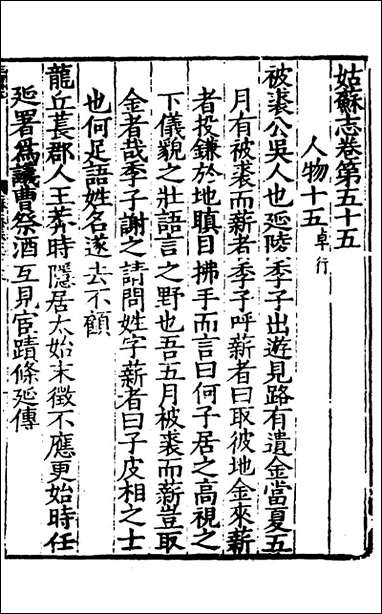 姑蘇志卷第五十五
人物十五 卓行
被裘公吳人也延陵季子出遊見路有遺金當夏五
月有被裘而薪者季子呼薪者曰取彼地金來薪
者投鎌於地瞋目拂手而言曰何子居之高視之
下儀貌之壯語言之野也吾五月被裘而薪豈取
金者哉季子謝之請問姓字薪者曰子皮相之士
也何足語姓名遂去不顧
龍丘萇郡人王莽時隱居太始末徵不應更始時任
延署爲議曹祭酒互見宦蹟條延傳